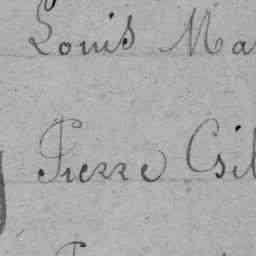 Louis Ma
Pierre Csil